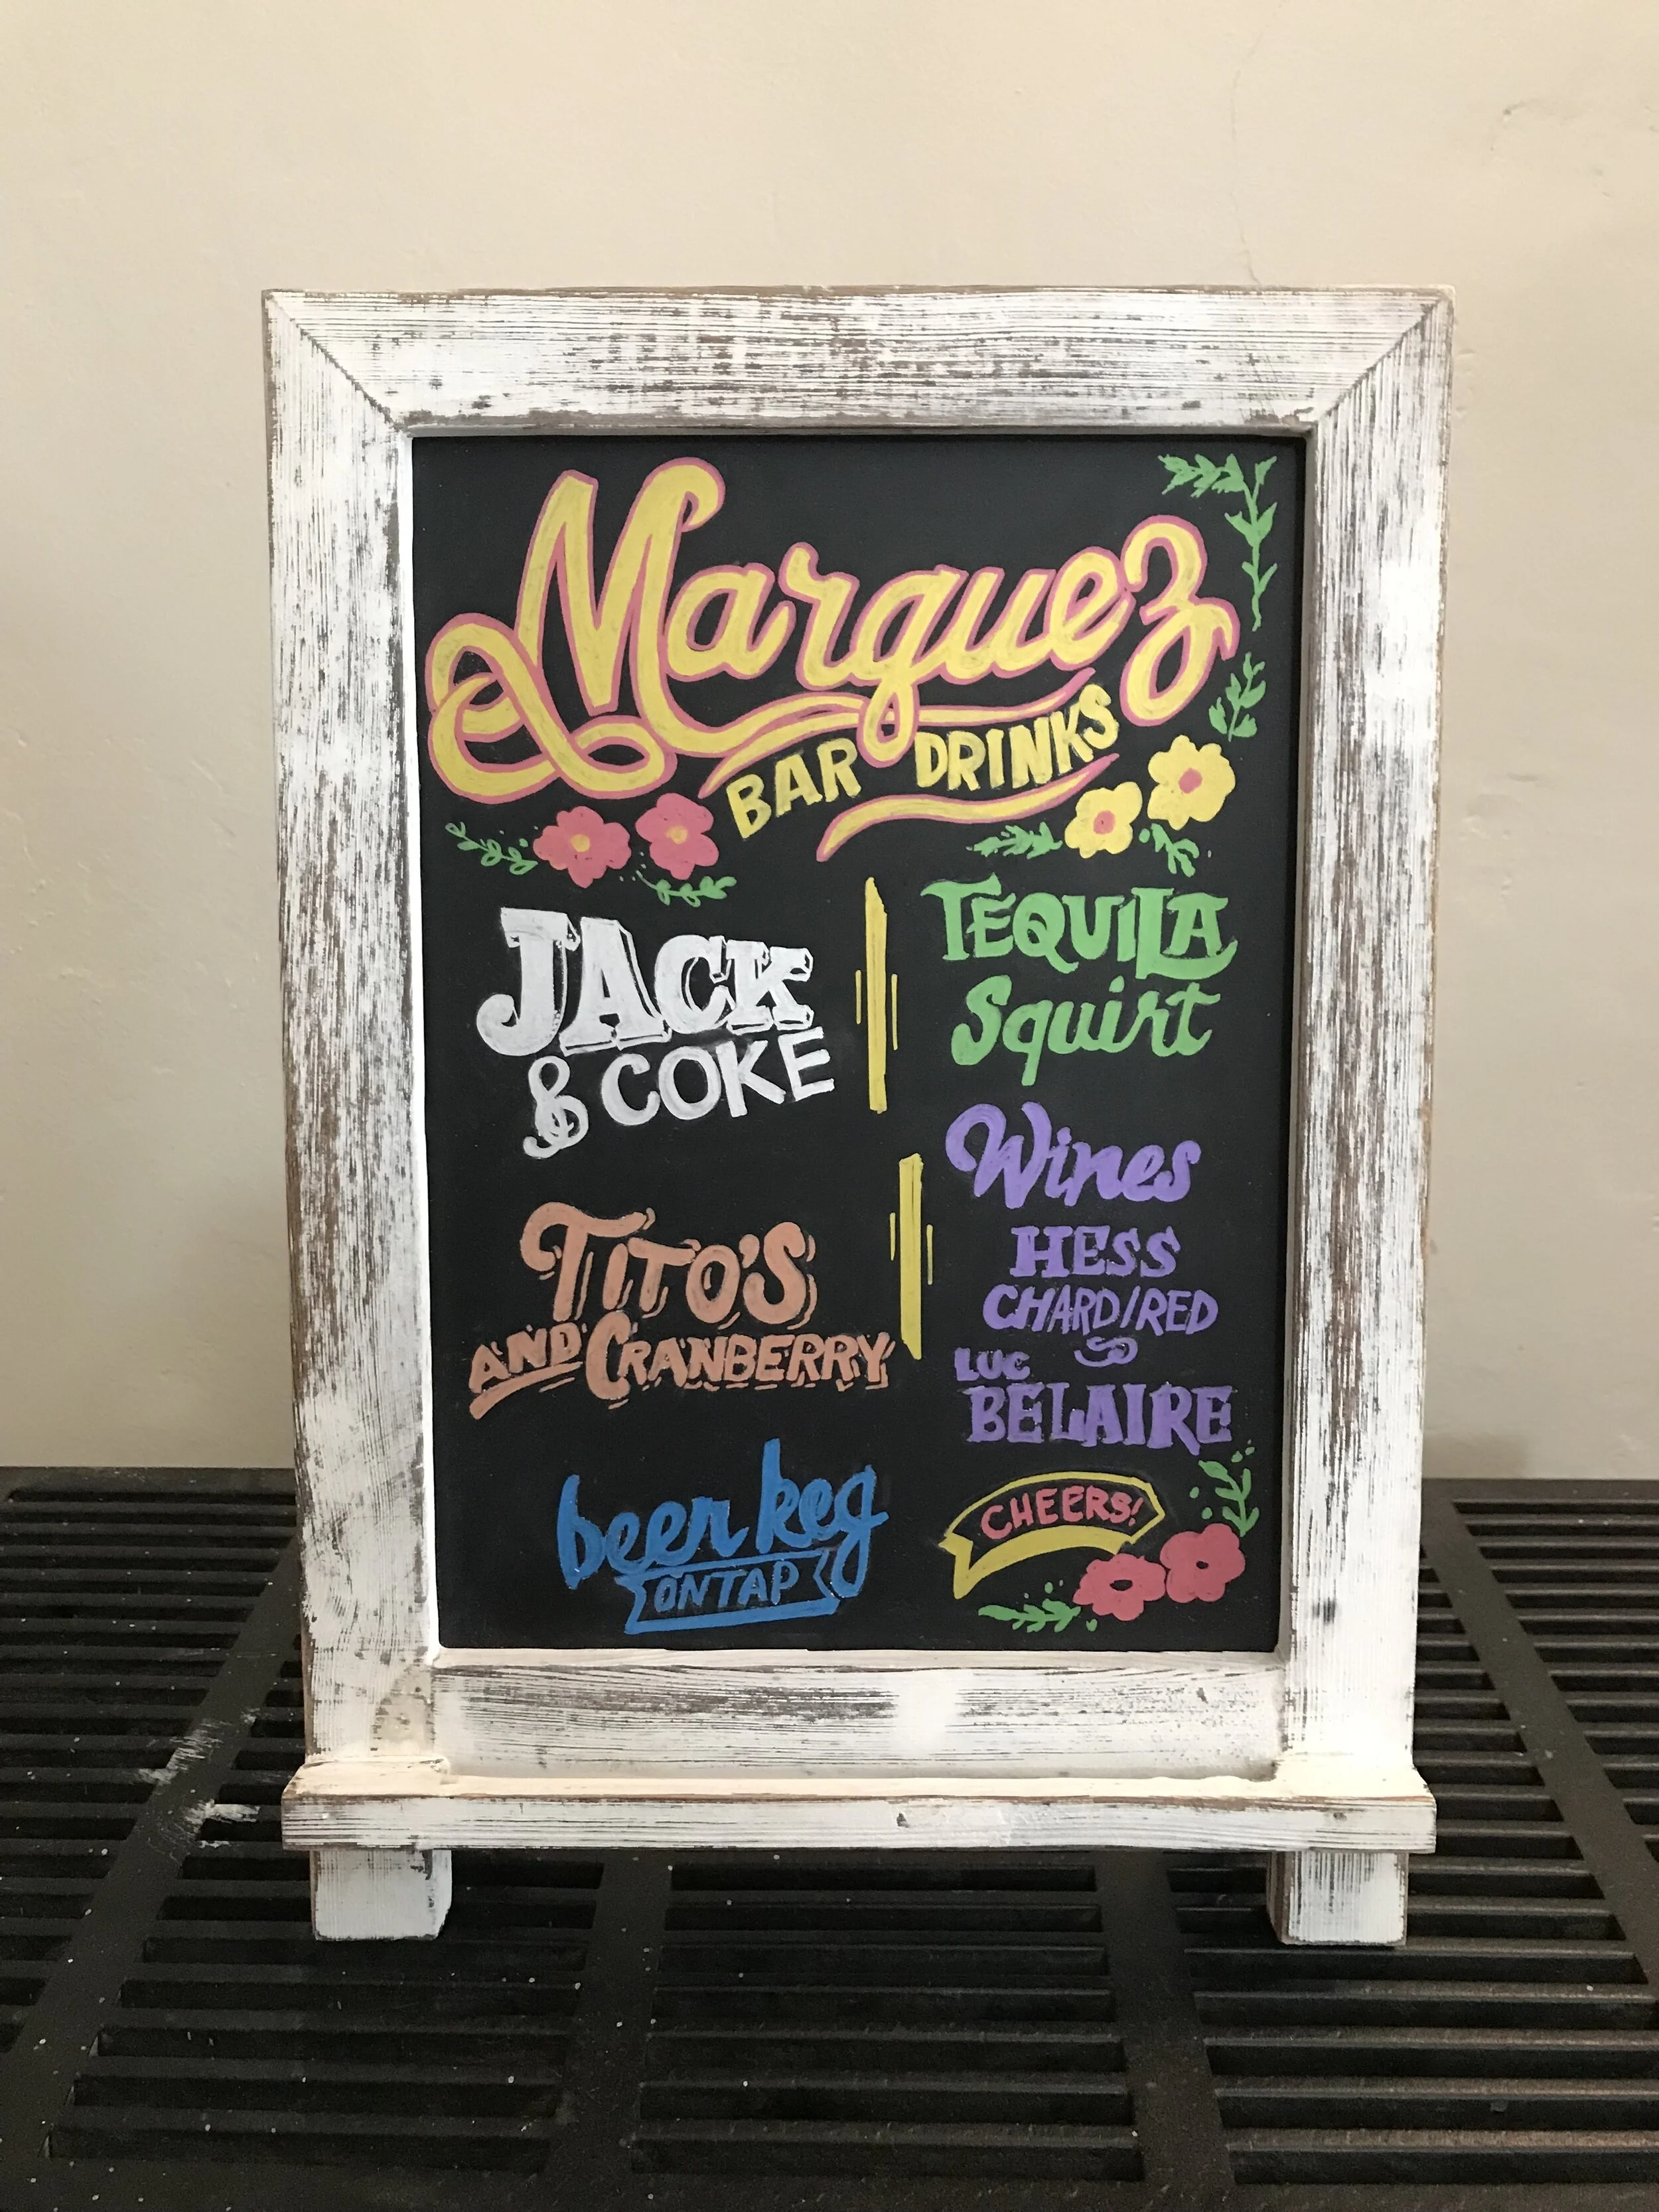 Marquez
BAR DRINKS
JACK
& COKE
TITO'S
AND CRANBERRY
beer keg
ON TAP
TEQUILA
Squirt
Wines
HESS
CHARD/RED
LUC
BELAIRE
CHEERS!